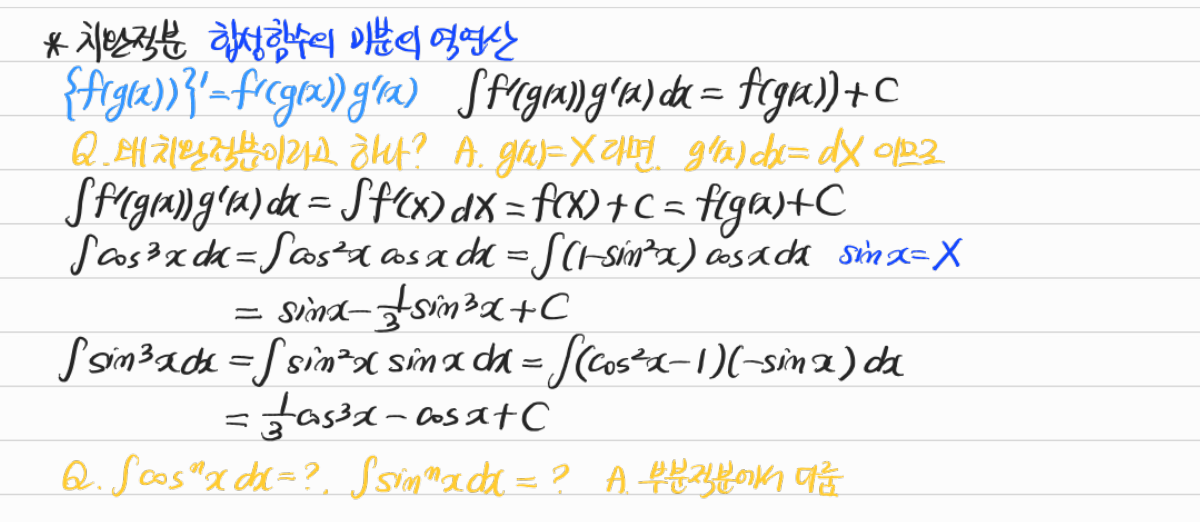 * 치환적분 합성함수의 미분의 역연산
{f(g(x))}'=f'(g(x))g'(x) ∫f'(g(x))g'(x)dx = f(g(x))+C
Q. 왜 치환적분이라고 하나? A. g(x)=X 라면. g'(x)dx=dX 이므로
∫f'(g(x))g'(x)dx = ∫f'(X)dX = f(X)+C = f(g(x))+C
∫cos³x dx = ∫cos²x cos x dx = ∫(1-sin²x) cos x dx sin x = X
= sin x - 1/3 sin³x + C
∫sin³x dx = ∫sin²x sin x dx = ∫(cos²x-1)(-sin x) dx
= 1/3 cos³x - cos x + C
Q. ∫cosⁿx dx = ?. ∫sinⁿx dx = ? A. 부분적분에서 다룸